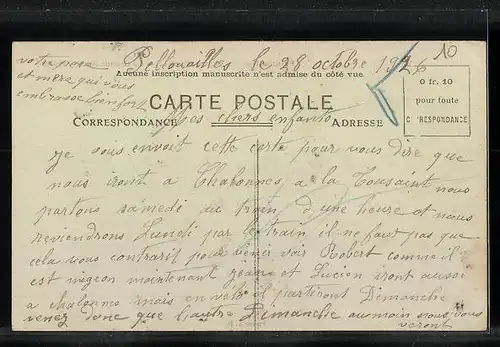 Pellouailles le 28 octobre 1926
10
votre pere
et mere qui vous
embrasse bien fort
Aucune inscription manuscrite n'est admise du côté vue.
0 fr. 10
pour toute
C RRESPONDANCE
CARTE POSTALE
CORRESPONDANCE
ADRESSE
Mes chers enfants
Je vous envoit cette carte pour vous dire que
nous iront à Chalonnes a la Toussaint nous
partons samedi au train d'une heure et nous
reviendrons Lundi par le train il ne faut pas que
cela vous contrarit pour venir voir Robert comme il
est mignon maintenant Jeane et Lucien iront aussi
a chalonnes mais en vélo il partiront Dimanche
venez donc que l'autre Dimanche au moin nous vous
veront